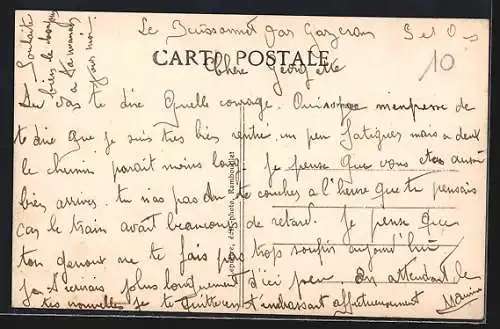 Le Buissonnet par Gazeran S et O
CARTE POSTALE
Chère Georgette
Tu vas te dire Quelle courage. Aussi m'empresse de
te dire que je suis très bien rentré un peu fatigues mais a deux
le chemin parait moins long. Je pense que vous etes aussi
bien arrives. tu n'as pas du te coucher a l'heure que tu pensais
car le train avait beaucoup de retard. Je pense que
ton genoux ne te fais pas trop soufrir aujourd'hui
Je t'ecrirais plus longuement d'ici peu En attendant de
tes nouvelles je te quitte en t'embrassant affectueusement
Souhaite
bien le bonjour
a
pour moi
10
édit.-photo, Rambouillet